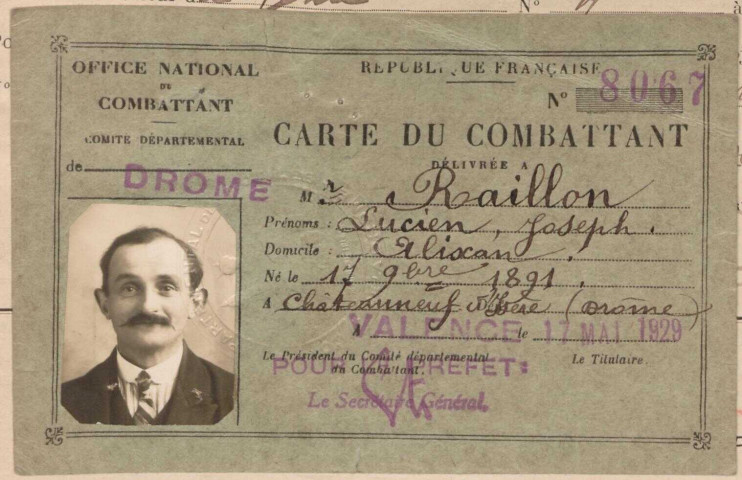 N°
OFFICE NATIONAL
DU
COMBATTANT
COMITÉ DÉPARTEMENTAL
de
DROME
RÉPUBLIQUE FRANÇAISE
N° 8067
CARTE DU COMBATTANT
DÉLIVRÉE A
M r Raillon
Prénoms : Lucien, Joseph.
Domicile : Alixan.
Né le 17 9bre 1891.
A Châteauneuf d'Isère (Drôme)
A VALENCE le 17 MAI 1929
Le Président du Comité départemental
du Combattant.
Le Titulaire.
POUR LE PREFET:
Le Secrétaire Général.